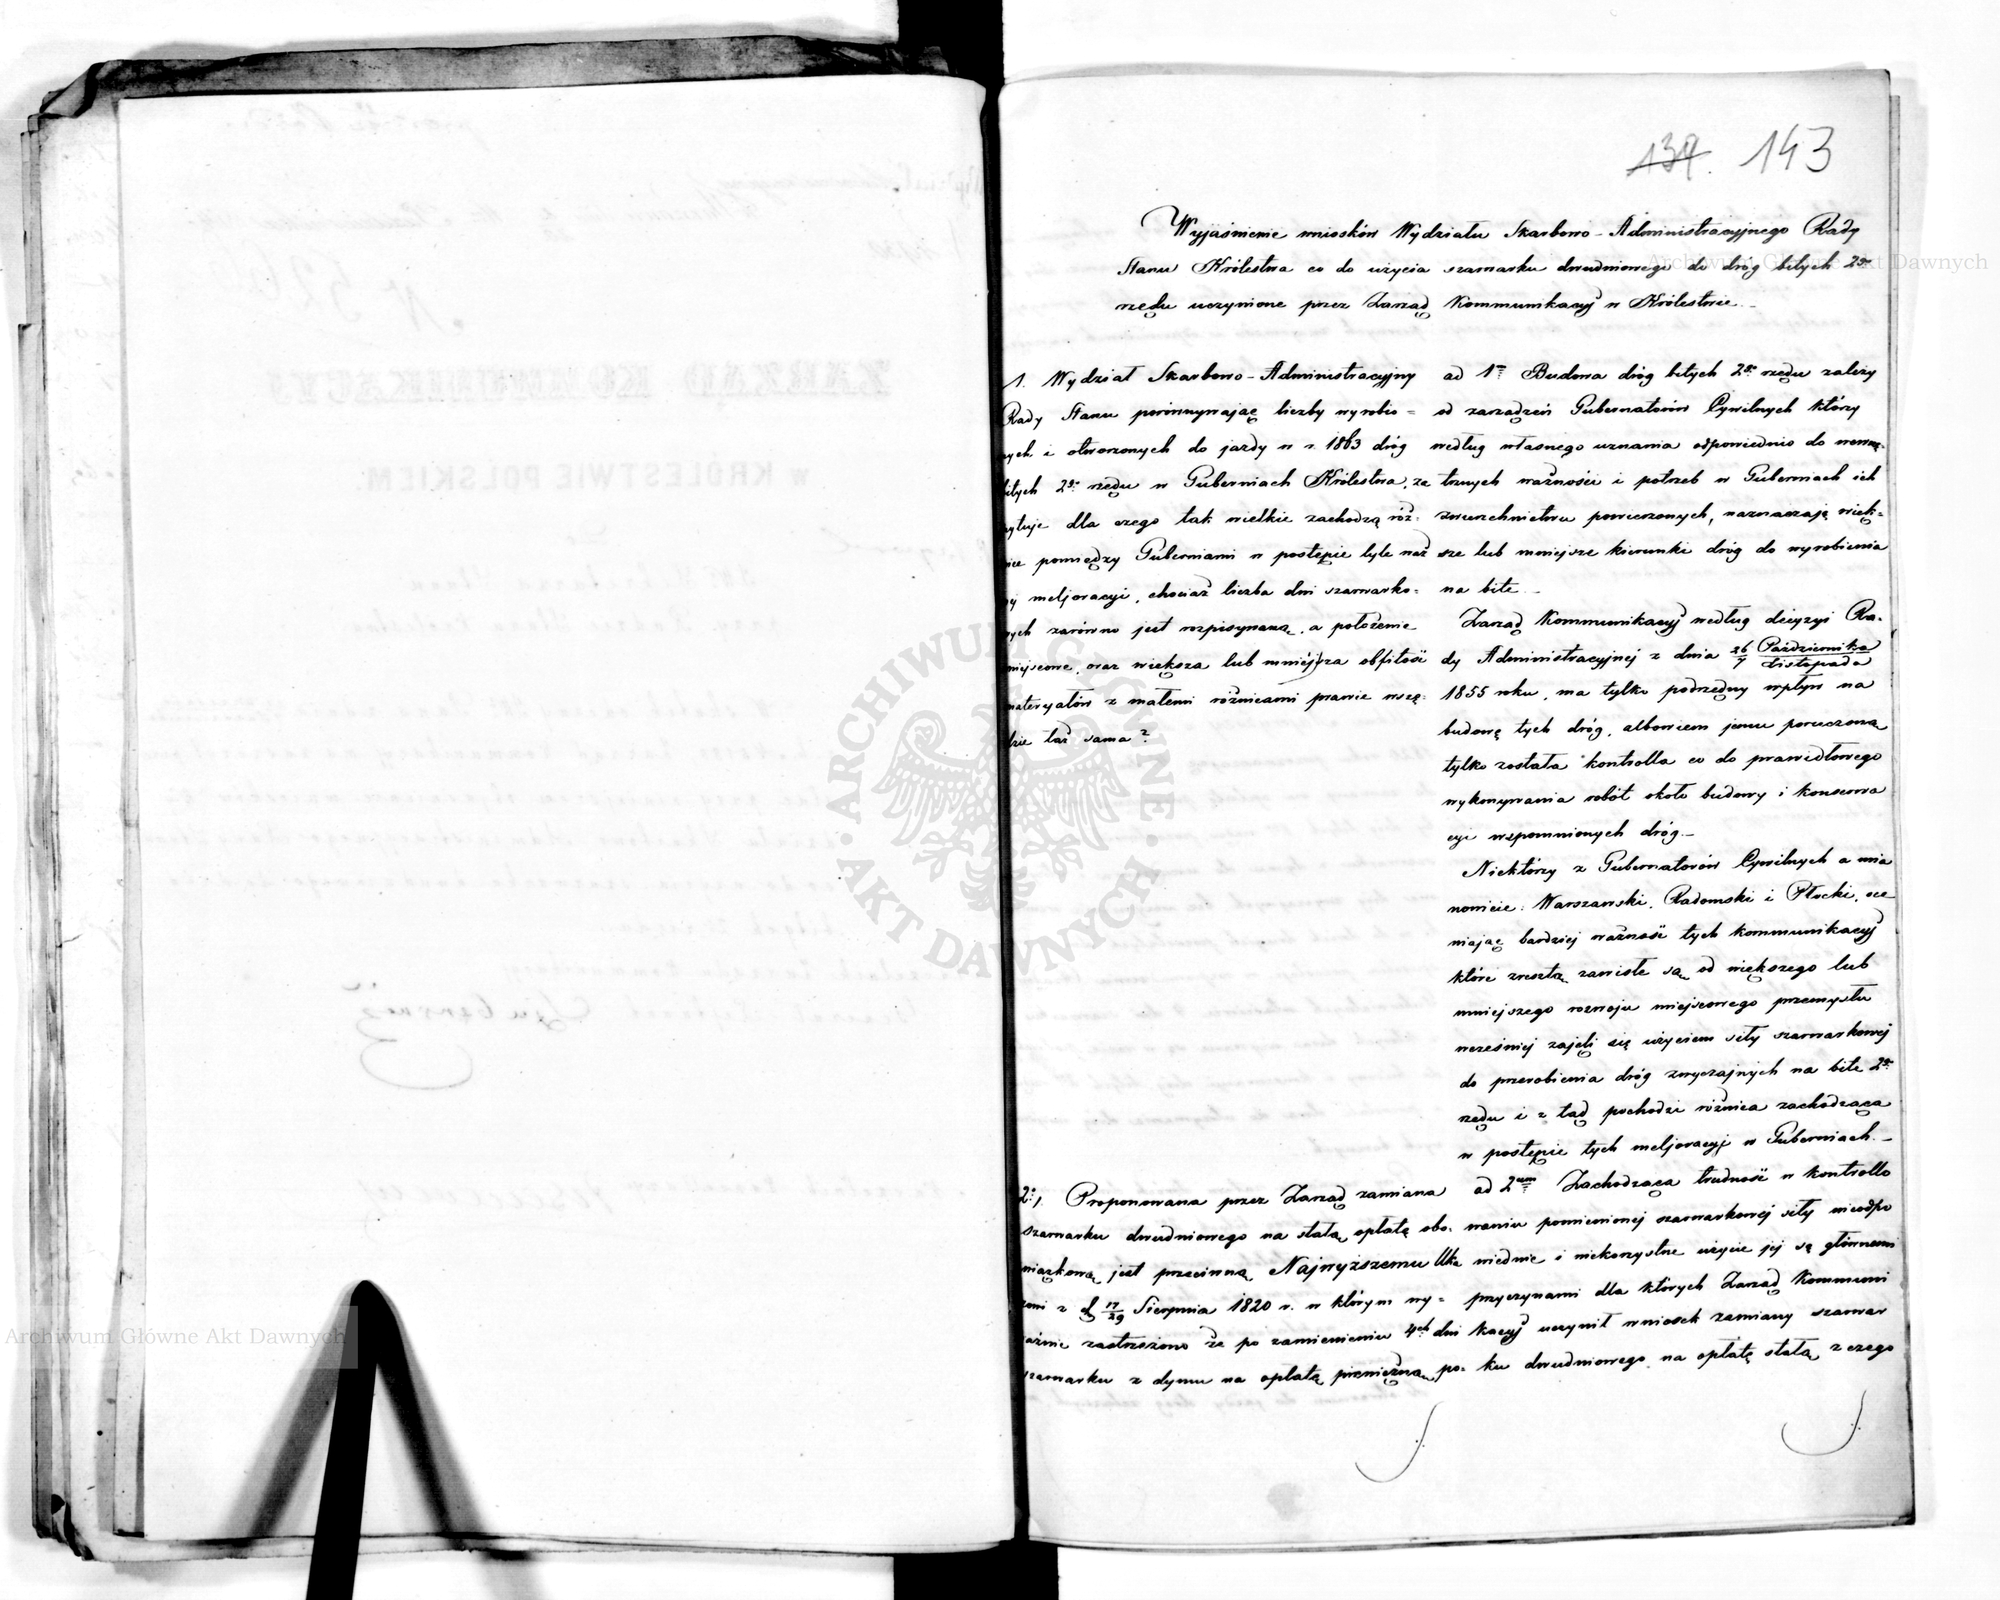 139. 143
Wyjaśnienie wniosków Wydziału Skarbowo-Administracyjnego Rady
Stanu Królestwa co do użycia szarwarku dwudniowego do dróg bitych 2go
rzędu uczynione przez Zarząd Kommunikacyj w Królestwie.
1. Wydział Skarbowo-Administracyjny
Rady Stanu porównywając liczby wyrobio=
nych i otworzonych do jazdy w r. 1863 dróg
bitych 2go rzędu w Guberniach Królestwa, za
pytuje dla czego tak wielkie zachodzą róż=
nice pomiędzy Guberniami w postępie tyle waż
nej meljoracyi, chociaż liczba dni szarwarko=
wych zarówno jest rozpisywaną, a położenie
miejscowe, oraz większa lub mniejsza obfitość
materyałów z małemi różnicami prawie wszę=
dzie taż sama?
ad 1m Budowa dróg bitych 2go rzędu zależy
od zarządzeń Gubernatorów Cywilnych którzy
według własnego uznania odpowiednio do wewnę=
trznych ważności i potrzeb w Guberniach ich
zwierzchnictwu powierzonych, naznaczają więk=
sze lub mniejsze kierunki dróg do wyrobienia
na bite.
Zarząd Kommunikacyj według decyzyi Ra=
dy Administracyjnej z dnia 26/7 Października/Listopada
1855 roku, ma tylko podrzędny wpływ na
budowę tych dróg, albowiem jemu poruczoną
tylko została kontrolla co do prawidłowego
wykonywania robót około budowy i konserwa
cyi wspomnionych dróg.
Niektórzy z Gubernatorów Cywilnych a mia
nowicie: Warszawski, Radomski i Płocki, oce
niając bardziej ważność tych kommunikacyj
które zresztą zawisłe są od większego lub
mniejszego rozwoju miejscowego przemysłu
wcześniej zajęli się użyciem siły szarwarkowej
do przerobienia dróg zwyczajnych na bite 2go
rzędu i z tąd pochodzi różnica zachodząca
w postępie tych meljoracyj w Guberniach.
2o/. Proponowana przez Zarząd zamiana
szarwarku dwudniowego na stałą opłatę obo=
wiązkową jest przeciwną Najwyższemu Uka
zowi z d. 17/29 Sierpnia 1820 r. w którym wy=
raźnie zastrzeżono że po zamienieniu 4ch dni
szarwarku z dymu na opłatę pieniężną, po=
ad 2um Zachodząca trudność w kontrollo
waniu pomienionej szarwarkowej siły nieodpo
wiednie i niekorzystne użycie jej są głównemi
przyczynami dla których Zarząd Kommuni
kacyj uczynił wniosek zamiany szarwar
ku dwudniowego na opłatę stałą z czego
ZARZĄD KOMMUNIKACYJ
w KRÓLESTWIE POLSKIEM.
ARCHIWUM GŁÓWNE AKT DAWNYCH
Archiwum Główne Akt Dawnych
Archiwum Główne Akt Dawnych